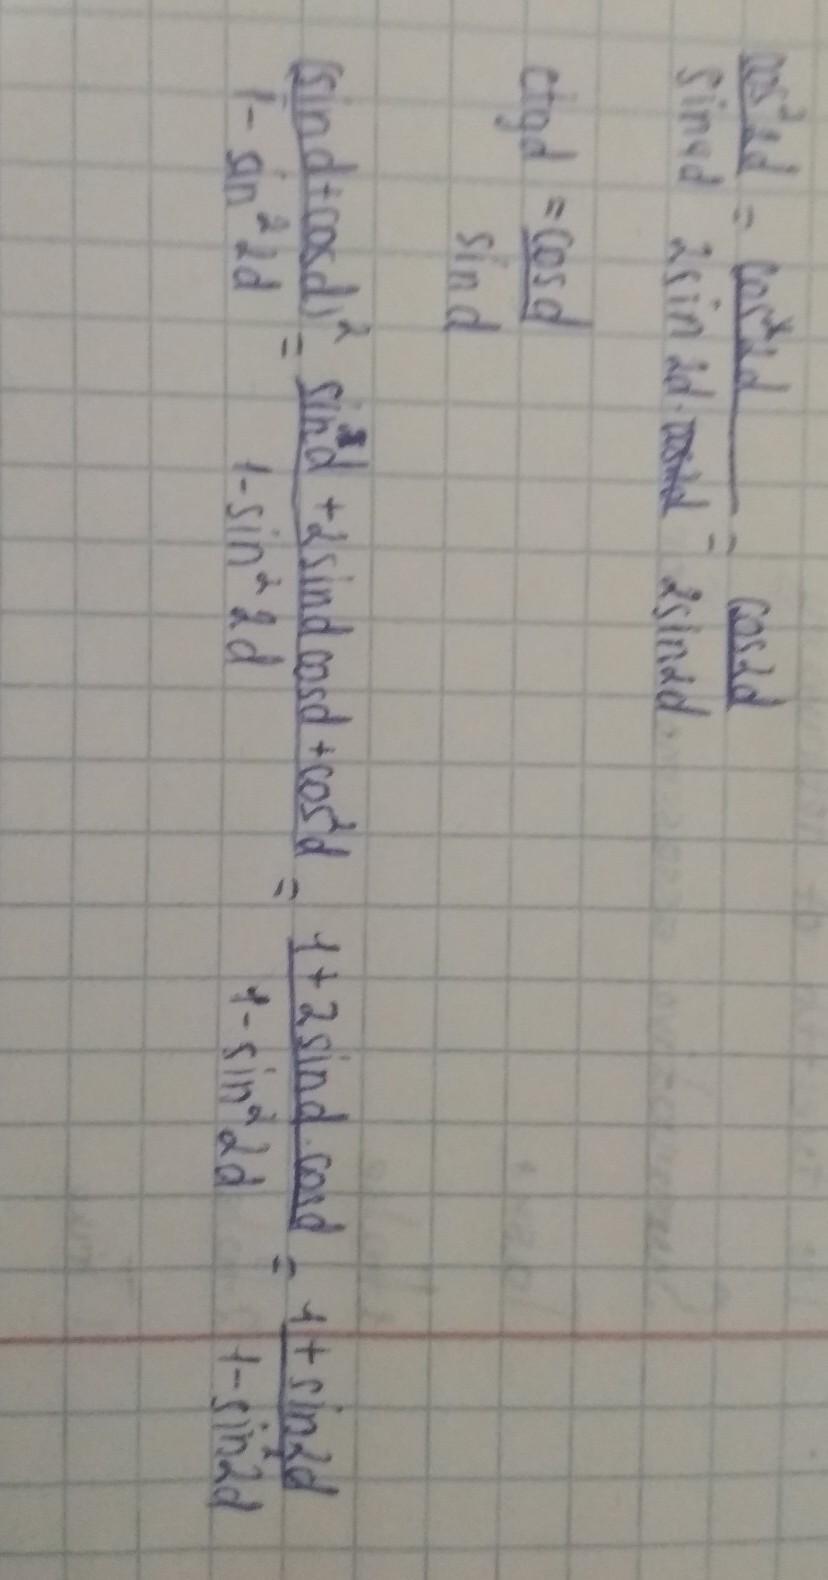 cos²2d / sin4d = cos²2d / 2sin2d·cos2d = cos2d / 2sin2d
ctgd = cosd / sind
(sind+cosd)² / 1-sin²2d = sin²d+2sindcosd+cos²d / 1-sin²2d = 1+2sind·cosd / 1-sin²2d = 1+sin2d / 1-sin²2d